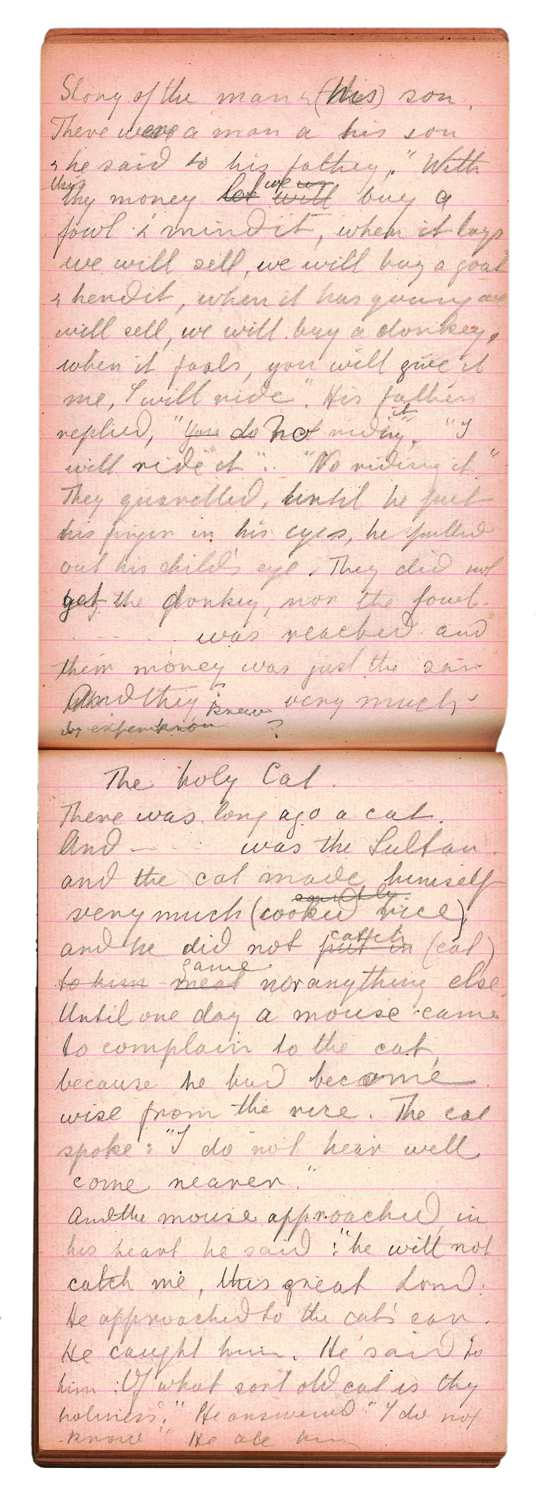 Story of the man & (his) son.
There were a man & his son
& he said to his father, "With
this
thy money let we will buy a
fowl & mind it, when it lays
we will sell, we will buy a goat
& hend it, when it has young we
will sell, we will buy a donkey,
when it foals, you will give it
me, I will ride". His father
replied, "You do not riding it", "I
will ride it". "No riding it"
They quarrelled, until he put
his finger in his eyes, he pulled
out his child's eye. They did not
get the donkey, nor the fowl.
was reached and
their money was just the same
And they knew very much
by experience ?
The holy Cat.
There was long ago a cat.
And - was the Sultan.
and the cat made himself
very much (cooked rice)
and he did not put in catch (eat)
to him meat game nor anything else
Until one day a mouse came
to complain to the cat,
because he had become
wise from the rice. The cat
spoke: "I do not hear well
come nearer."
And the mouse approached, in
his heart he said: "he will not
catch me, this great Lord.
He approached to the cat's ear.
He caught him. He said to
him: Of what sort old cat is thy
holiness." He answered "I do not
know" He ate him